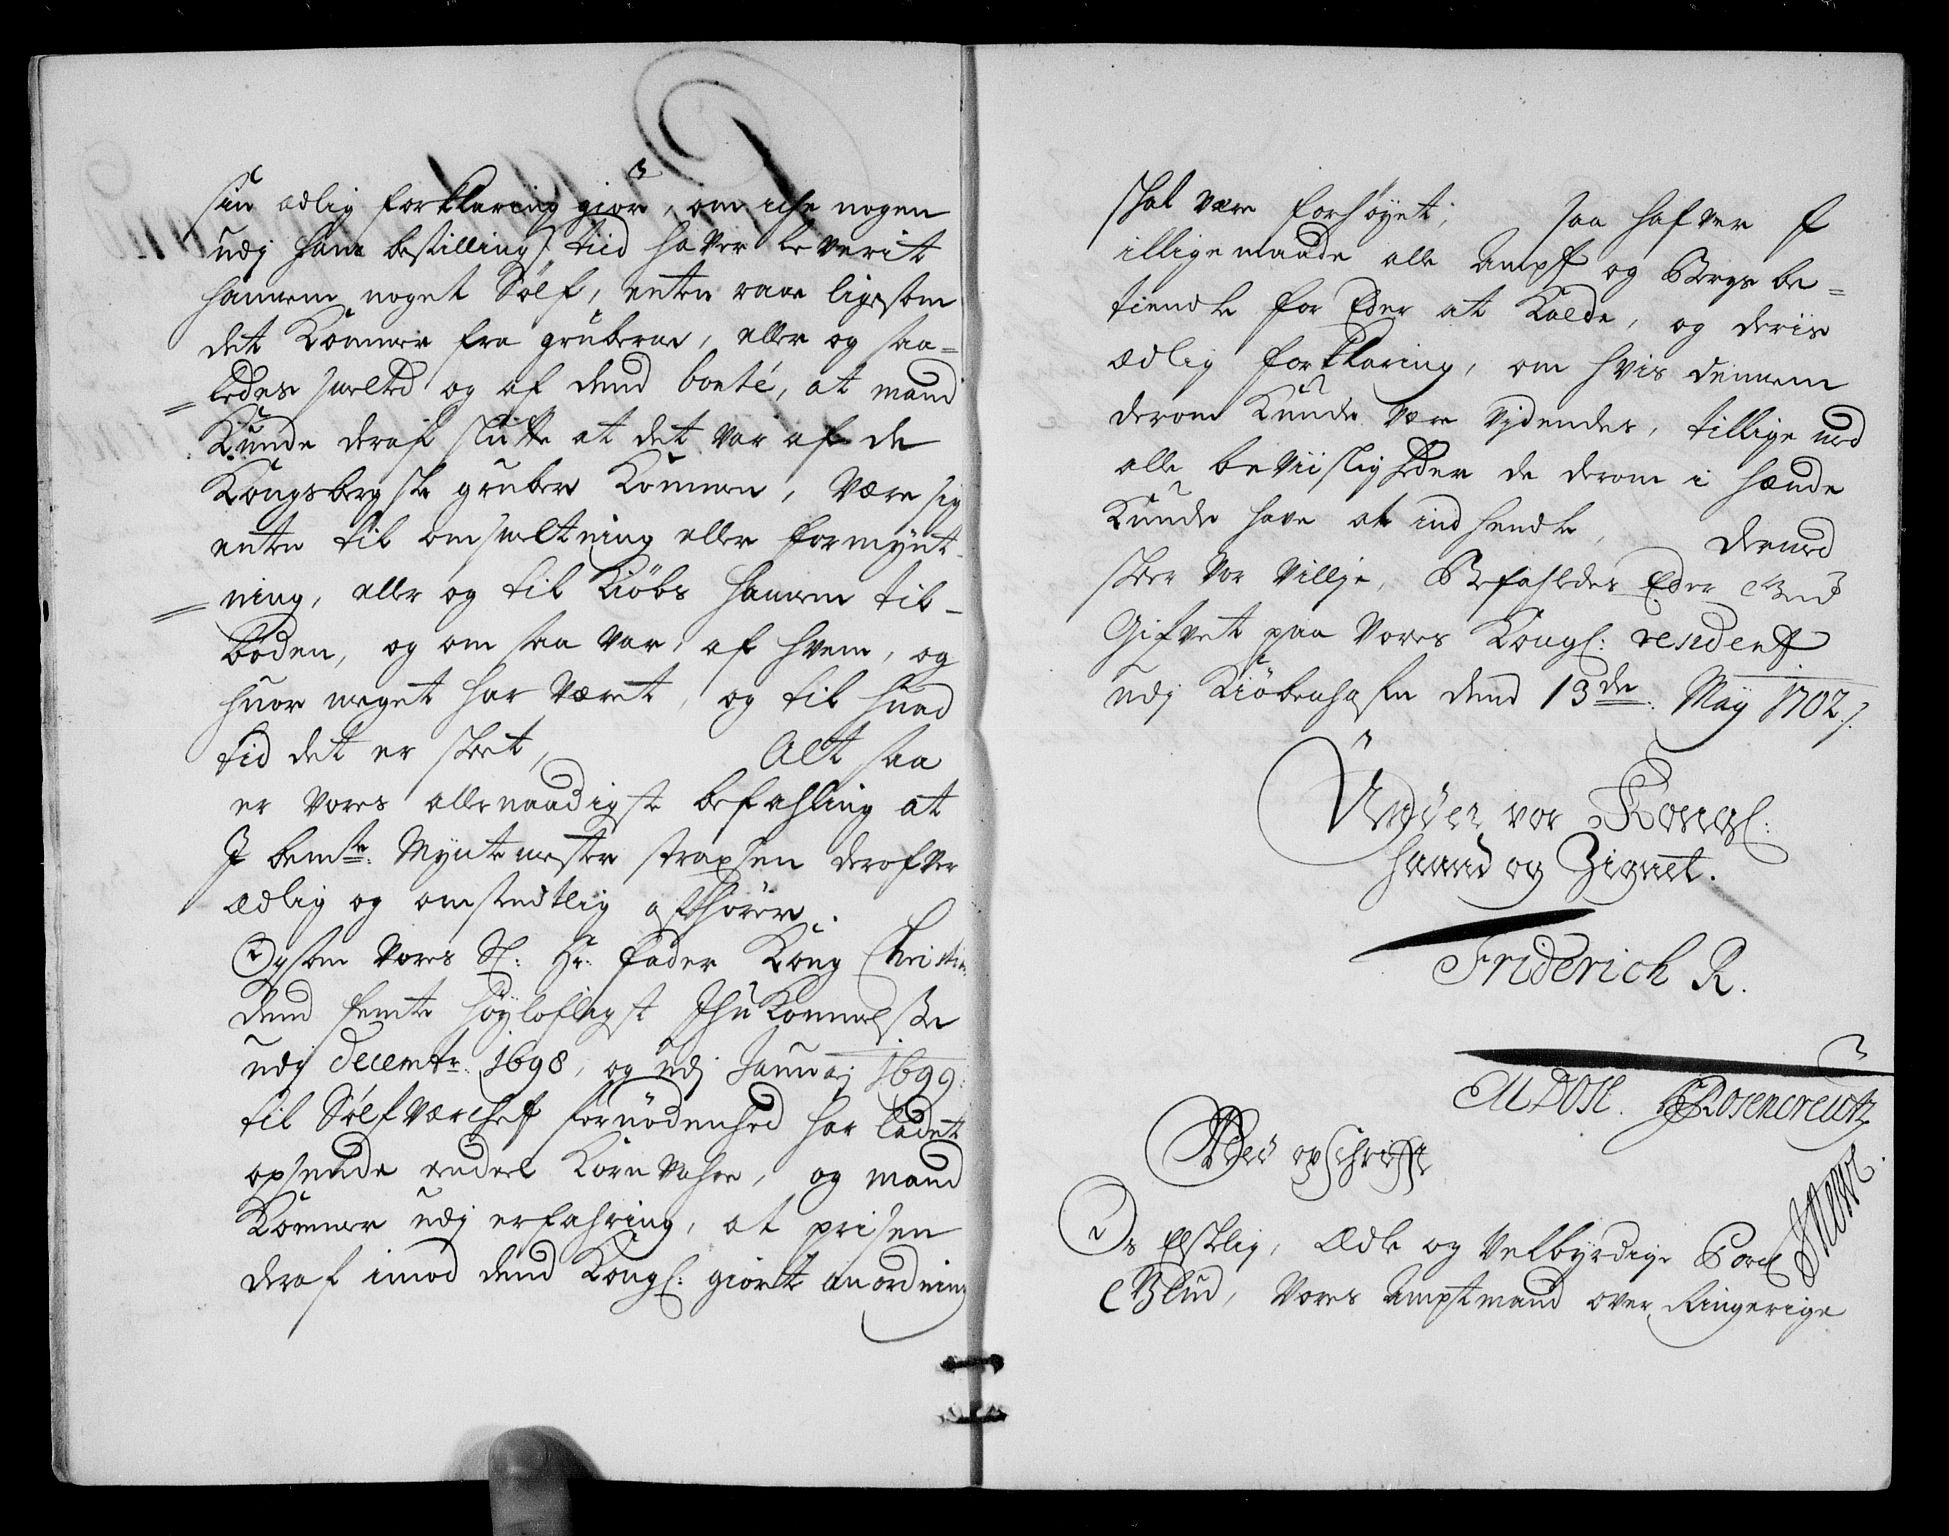 sin ædlig forklaring giøre, om iche nogen
udj hans bestillings tiid haver leverit
hannem noget Sølf, enten raae ligesom
det Kommer fra gruberne, eller og saa-
ledes smeltet og af dend bonté, at mand
Kunde deraf slutte at det var af de
Kongsbergske gruber Kommen, være sig
enten til omsmeltning eller formynt-
ning, eller og til Kiøbs hannem til-
boden, og om saa var, af hvem, og
huor meget har været, og til huad
tid det er skeet, Alt saa
er vores allernaadigste befahling at
I bemte: Myntemester strapsen derofver
ædlig og omstendtlig afhører.
Og som Vores Sl: Hr: Fader Kong Christian
dend femte Høyloflagst Ihukommelse
udj decembr: 1698, og udj Januarj 1699:
til Sølfværchetz fornødenhed har ladet
opsende endeel Kornvahre, og mand
Kommer udj erfahring, at prisen
deraf imod dend Kongl: giorte anordning
skal være forhøyet; saa hafver I
illigemaade alle Ampt og Bergbe-
tiendte for Eder at Kalde, og deris
ædlig forklaring, om hvis dennem
derom Kunde være videndes, tillige med
alle beviisligheder de derom i hænde
Kunde have at indhendte, Dermed
skeer vor villje, Befahlendes Eder Gud
Gifvet paa Vores Kongl: residentz
udj Kiøbenhafn dend 13de: Maÿ 1702./.
Under vor Kongl:
Haand og Zignet.
Friderich R.
M Pose. Rosencreutz
Med opschrifft
Os Elskelig, Ædle og Velbyrdige Povel
Glud, Vores Amptmand over Ringerige